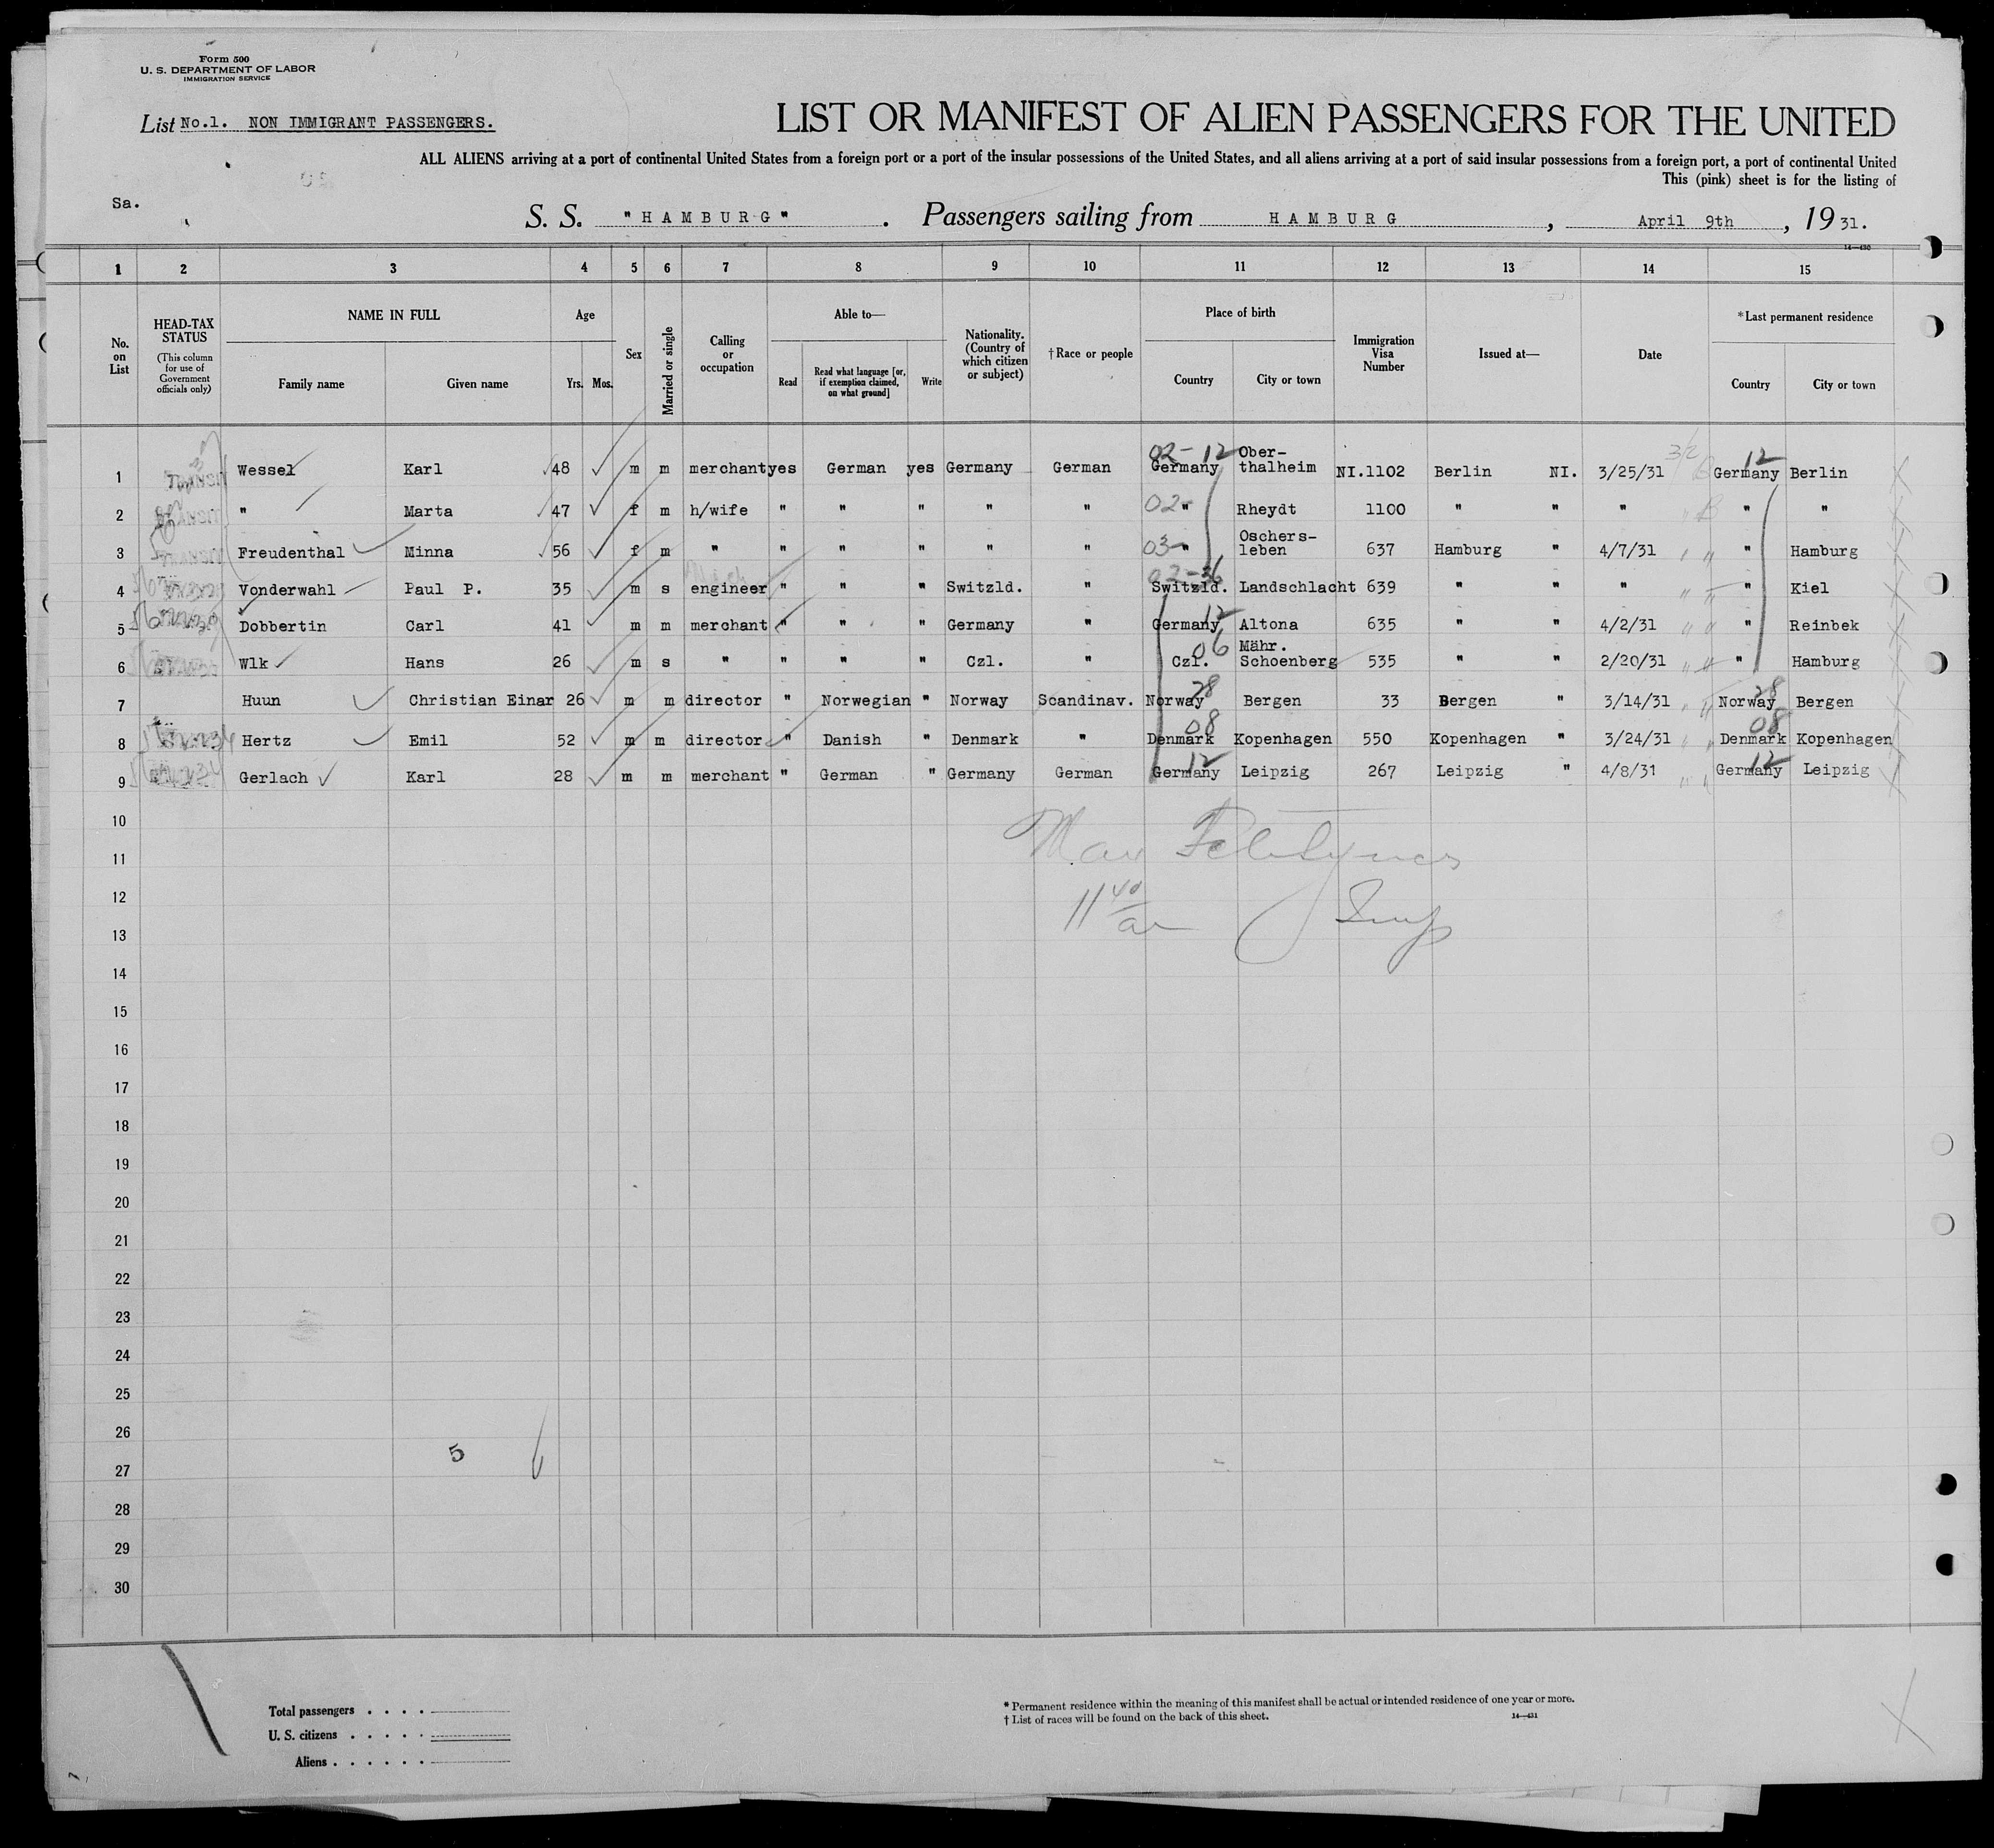 Form 500
U. S. DEPARTMENT OF LABOR
IMMIGRATION SERVICE
List No.1. NON IMMIGRANT PASSENGERS.
LIST OR MANIFEST OF ALIEN PASSENGERS FOR THE UNITED
ALL ALIENS arriving at a port of continental United States from a foreign port or a port of the insular possessions of the United States, and all aliens arriving at a port of said insular possessions from a foreign port, a port of continental United
This (pink) sheet is for the listing of
Sa.
S. S. "HAMBURG" . Passengers sailing from HAMBURG , April 9th , 19 31.
14—430
1 2 3 4 5 6 7 8 9 10 11 12 13 14 15
No. on List
HEAD-TAX STATUS (This column for use of Government officials only)
NAME IN FULL
Family name Given name
Age
Yrs. Mos.
Sex
Married or single
Calling or occupation
Able to—
Read Read what language [or, if exemption claimed, on what ground] Write
Nationality. (Country of which citizen or subject)
†Race or people
Place of birth
Country City or town
Immigration Visa Number
Issued at—
Date
*Last permanent residence
Country City or town
02-12 3/2 12
1 Wessel Karl 48 m m merchant yes German yes Germany German Germany Ober-thalheim NI.1102 Berlin NI. 3/25/31 Germany Berlin
2 " Marta 47 f m h/wife " " " " " 02- " Rheydt 1100 " " " " "
3 Freudenthal Minna 56 f m " " " " " " 03- " Oschers-leben 637 Hamburg " 4/7/31 " Hamburg
02-36
4 Vonderwahl Paul P. 35 m s engineer " " " Switzld. " Switzld. Landschlacht 639 " " " " Kiel
12
5 Dobbertin Carl 41 m m merchant " " " Germany " Germany Altona 635 " " 4/2/31 " Reinbek
06
6 Wlk Hans 26 m s " " " " Czl. " Czl. Mähr. Schoenberg 535 " " 2/20/31 " Hamburg
28 28
7 Huun Christian Einar 26 m m director " Norwegian " Norway Scandinav. Norway Bergen 33 Bergen " 3/14/31 Norway Bergen
08 08
8 Hertz Emil 52 m m director " Danish " Denmark " Denmark Kopenhagen 550 Kopenhagen " 3/24/31 Denmark Kopenhagen
12 12
9 Gerlach Karl 28 m m merchant " German " Germany German Germany Leipzig 267 Leipzig " 4/8/31 Germany Leipzig
10
11
12
13
14
15
16
17
18
19
20
21
22
23
24
25
26
5
27
28
29
30
Total passengers . . . .
U. S. citizens . . . . .
Aliens . . . . . .
* Permanent residence within the meaning of this manifest shall be actual or intended residence of one year or more.
† List of races will be found on the back of this sheet.
14—431